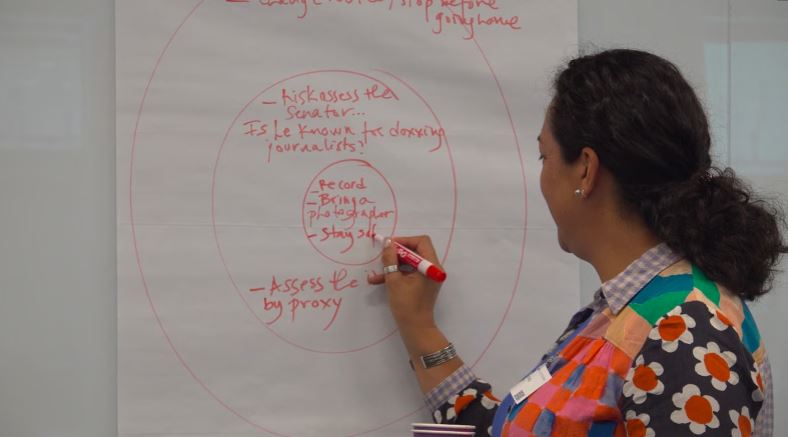 before
going home
- Risk assess the
Senator...
Is he known for doxxing
journalists?
- Record
- Bring a
photographer
- Stay saf
- Assess the
by proxy